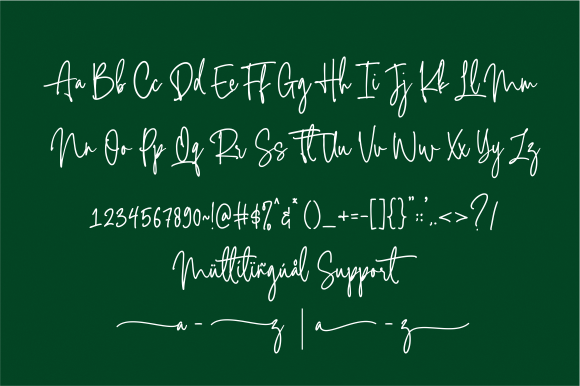 Aa Bb Cc Dd Ee Ff Gg Hh Ii Jj Kk Ll Mm
Nn Oo Pp Qq Rr Ss Tt Uu Vv Ww Xx Yy Zz
1234567890~!@#$%^&*()_+=-[]{}"::',.<>?/
Mültïlïñgúål Support
a - z | a - z